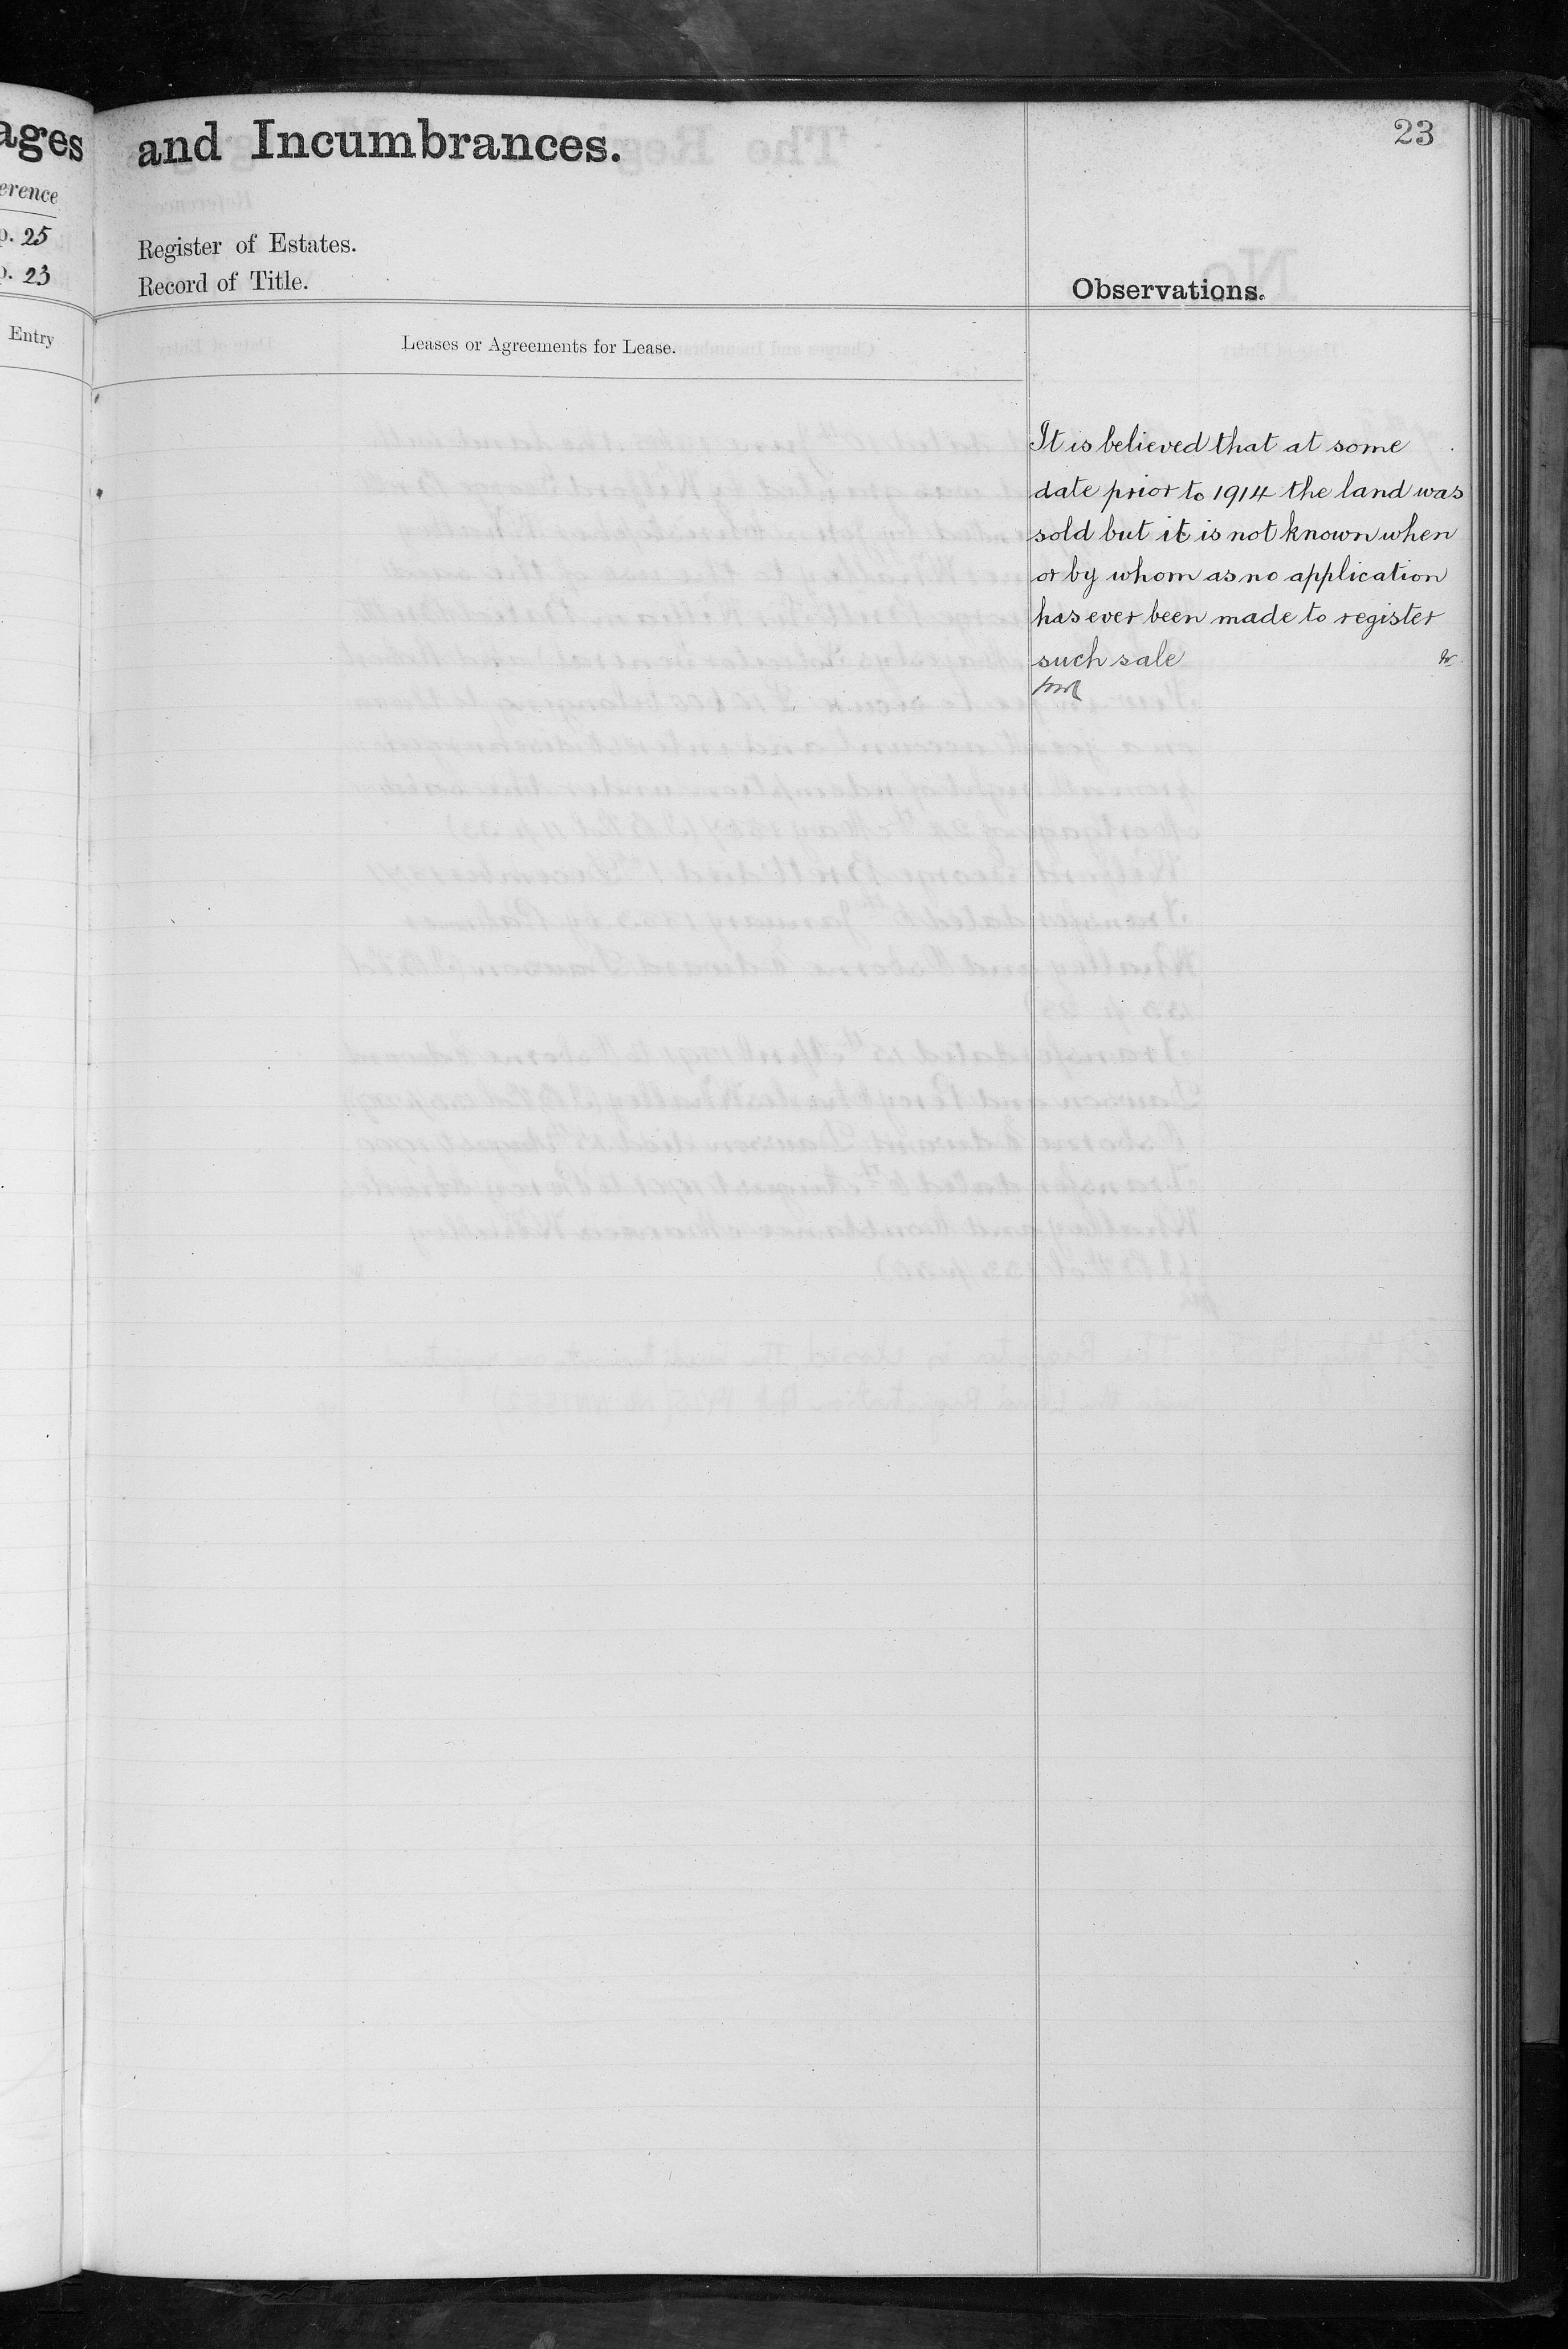 ages
and Incumbrances.
23
erence
p. 25
Register of Estates.
p. 23
Record of Title.
Observations.
Entry
Leases or Agreements for Lease.
It is believed that at some
date prior to 1914 the land was
sold but it is not known when
or by whom as no application
has ever been made to register
such sale